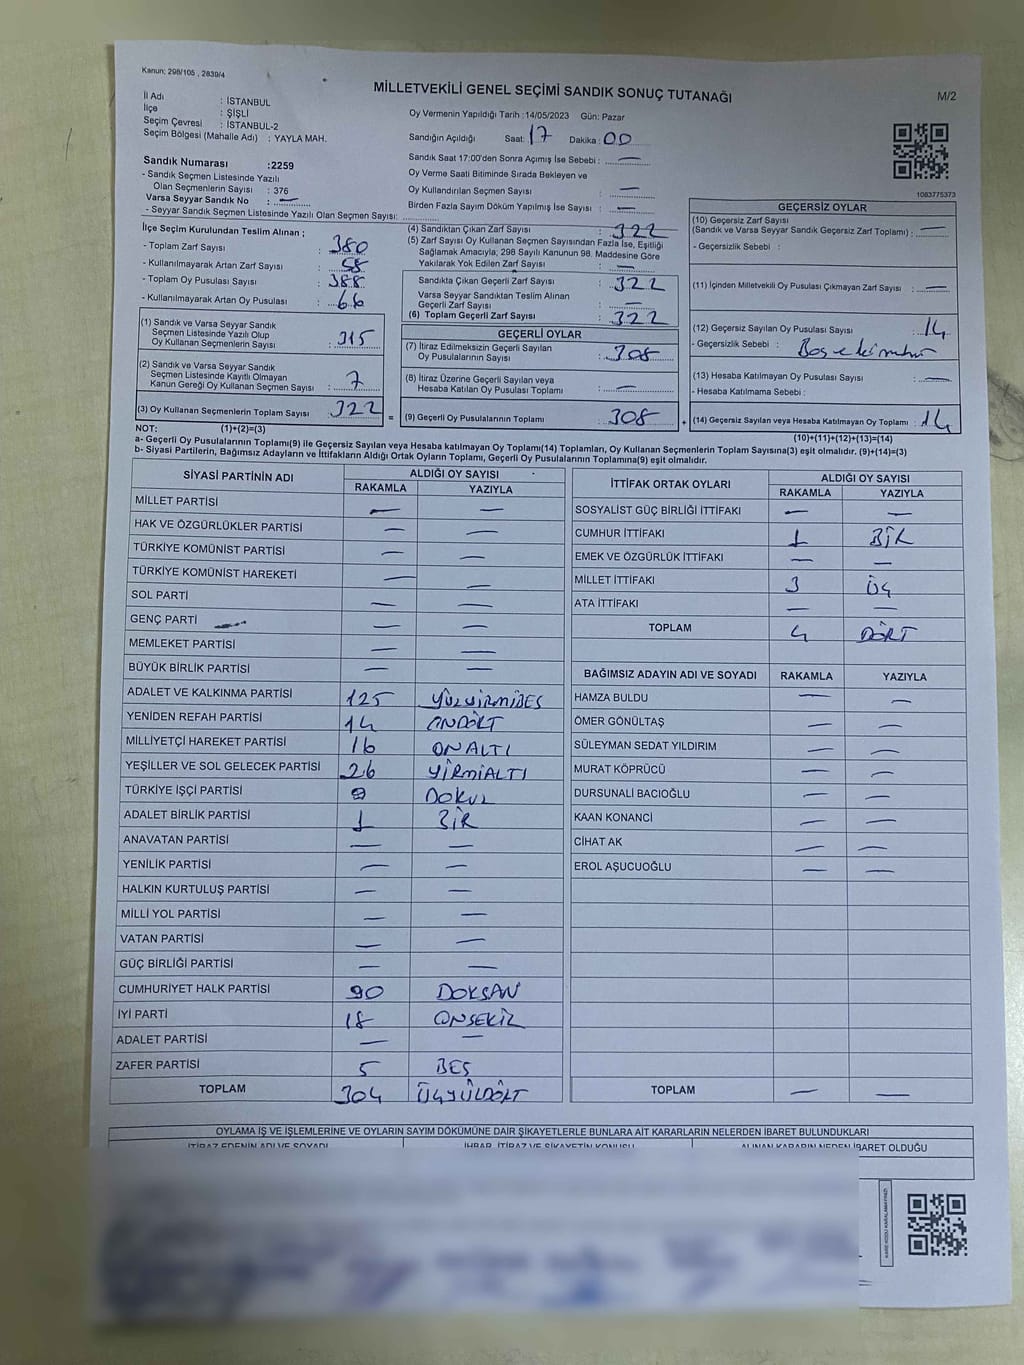 Kanun: 298/105 , 2839/4
MİLLETVEKİLİ GENEL SEÇİMİ SANDIK SONUÇ TUTANAĞI
M/2
İl Adı : İSTANBUL
İlçe : ŞİŞLİ
Seçim Çevresi : İSTANBUL-2
Seçim Bölgesi (Mahalle Adı) : YAYLA MAH.
Sandık Numarası :2259
- Sandık Seçmen Listesinde Yazılı
Olan Seçmenlerin Sayısı : 376
Varsa Seyyar Sandık No : —
- Seyyar Sandık Seçmen Listesinde Yazılı Olan Seçmen Sayısı:
Oy Vermenin Yapıldığı Tarih :14/05/2023 Gün: Pazar
Sandığın Açıldığı Saat: 17 Dakika: 00
Sandık Saat 17:00'den Sonra Açımış İse Sebebi : —
Oy Verme Saati Bitiminde Sırada Bekleyen ve
Oy Kullandırılan Seçmen Sayısı : —
Birden Fazla Sayım Döküm Yapılmış İse Sayısı : —
1083775373
İlçe Seçim Kurulundan Teslim Alınan ;
- Toplam Zarf Sayısı : 380
- Kullanılmayarak Artan Zarf Sayısı : 58
- Toplam Oy Pusulası Sayısı : 388
- Kullanılmayarak Artan Oy Pusulası : 66
(1) Sandık ve Varsa Seyyar Sandık
Seçmen Listesinde Yazılı Olup
Oy Kullanan Seçmenlerin Sayısı : 315
(2) Sandık ve Varsa Seyyar Sandık
Seçmen Listesinde Kayıtlı Olmayan
Kanun Gereği Oy Kullanan Seçmen Sayısı : 7
(3) Oy Kullanan Seçmenlerin Toplam Sayısı : 322 =
(4) Sandıktan Çıkan Zarf Sayısı : 322
(5) Zarf Sayısı Oy Kullanan Seçmen Sayısından Fazla İse, Eşitliği
Sağlamak Amacıyla, 298 Sayılı Kanunun 98. Maddesine Göre
Yakılarak Yok Edilen Zarf Sayısı : —
Sandıkta Çıkan Geçerli Zarf Sayısı : 322
Varsa Seyyar Sandıktan Teslim Alınan
Geçerli Zarf Sayısı : —
(6) Toplam Geçerli Zarf Sayısı : 322
GEÇERLİ OYLAR
(7) İtiraz Edilmeksizin Geçerli Sayılan
Oy Pusulalarının Sayısı : 308
(8) İtiraz Üzerine Geçerli Sayılan veya
Hesaba Katılan Oy Pusulası Toplamı : —
(9) Geçerli Oy Pusulalarının Toplamı : 308 +
GEÇERSİZ OYLAR
(10) Geçersiz Zarf Sayısı
(Sandık ve Varsa Seyyar Sandık Geçersiz Zarf Toplamı) : —
- Geçersizlik Sebebi :
(11) İçinden Milletvekili Oy Pusulası Çıkmayan Zarf Sayısı : —
(12) Geçersiz Sayılan Oy Pusulası Sayısı : 14
- Geçersizlik Sebebi :
(13) Hesaba Katılmayan Oy Pusulası Sayısı : —
- Hesaba Katılmama Sebebi :
(14) Geçersiz Sayılan veya Hesaba Katılmayan Oy Toplamı : 14
NOT: (1)+(2)=(3)
(10)+(11)+(12)+(13)=(14)
a- Geçerli Oy Pusulalarının Toplamı(9) ile Geçersiz Sayılan veya Hesaba katılmayan Oy Toplamı(14) Toplamları, Oy Kullanan Seçmenlerin Toplam Sayısına(3) eşit olmalıdır. (9)+(14)=(3)
b- Siyasi Partilerin, Bağımsız Adayların ve İttifakların Aldığı Ortak Oyların Toplamı, Geçerli Oy Pusulalarının Toplamına(9) eşit olmalıdır.
SİYASİ PARTİNİN ADI ALDIĞI OY SAYISI
RAKAMLA YAZIYLA
MİLLET PARTİSİ — —
HAK VE ÖZGÜRLÜKLER PARTİSİ — —
TÜRKİYE KOMÜNİST PARTİSİ — —
TÜRKİYE KOMÜNİST HAREKETİ — —
SOL PARTİ — —
GENÇ PARTİ — —
MEMLEKET PARTİSİ — —
BÜYÜK BİRLİK PARTİSİ — —
ADALET VE KALKINMA PARTİSİ 125 YÜZYİRMİBEŞ
YENİDEN REFAH PARTİSİ 14 ONDÖRT
MİLLİYETÇİ HAREKET PARTİSİ 16 ONALTI
YEŞİLLER VE SOL GELECEK PARTİSİ 26 YİRMİALTI
TÜRKİYE İŞÇİ PARTİSİ 9 DOKUZ
ADALET BİRLİK PARTİSİ 1 BİR
ANAVATAN PARTİSİ — —
YENİLİK PARTİSİ — —
HALKIN KURTULUŞ PARTİSİ — —
MİLLİ YOL PARTİSİ — —
VATAN PARTİSİ — —
GÜÇ BİRLİĞİ PARTİSİ — —
CUMHURİYET HALK PARTİSİ 90 DOKSAN
İYİ PARTİ 18 ONSEKİZ
ADALET PARTİSİ — —
ZAFER PARTİSİ 5 BEŞ
TOPLAM 304 ÜÇYÜZDÖRT
İTTİFAK ORTAK OYLARI ALDIĞI OY SAYISI
RAKAMLA YAZIYLA
SOSYALİST GÜÇ BİRLİĞİ İTTİFAKI — —
CUMHUR İTTİFAKI 1 BİR
EMEK VE ÖZGÜRLÜK İTTİFAKI — —
MİLLET İTTİFAKI 3 ÜÇ
ATA İTTİFAKI — —
TOPLAM 4 DÖRT
BAĞIMSIZ ADAYIN ADI VE SOYADI RAKAMLA YAZIYLA
HAMZA BULDU — —
ÖMER GÖNÜLTAŞ — —
SÜLEYMAN SEDAT YILDIRIM — —
MURAT KÖPRÜCÜ — —
DURSUNALİ BACIOĞLU — —
KAAN KONANCİ — —
CİHAT AK — —
EROL AŞUCUOĞLU — —
TOPLAM — —
OYLAMA İŞ VE İŞLEMLERİNE VE OYLARIN SAYIM DÖKÜMÜNE DAİR ŞİKAYETLERLE BUNLARA AİT KARARLARIN NELERDEN İBARET BULUNDUKLARI
İTİRAZ EDENİN ADI VE SOYADI İHBAR, İTİRAZ VE ŞİKAYETİN KONUSU ALINAN KARARIN NEDEN İBARET OLDUĞU